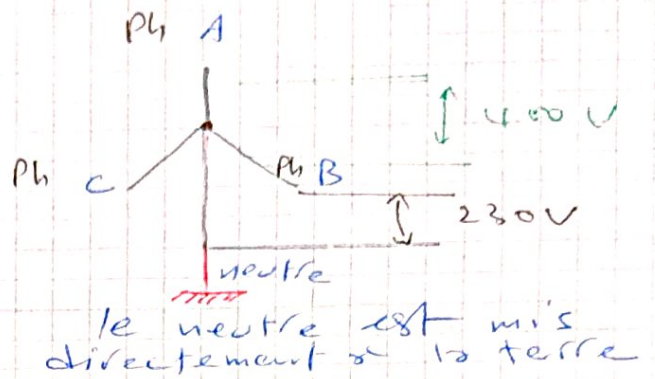 Ph A
400 V
Ph C
Ph B
230V
neutre
le neutre est mis
directement à la terre